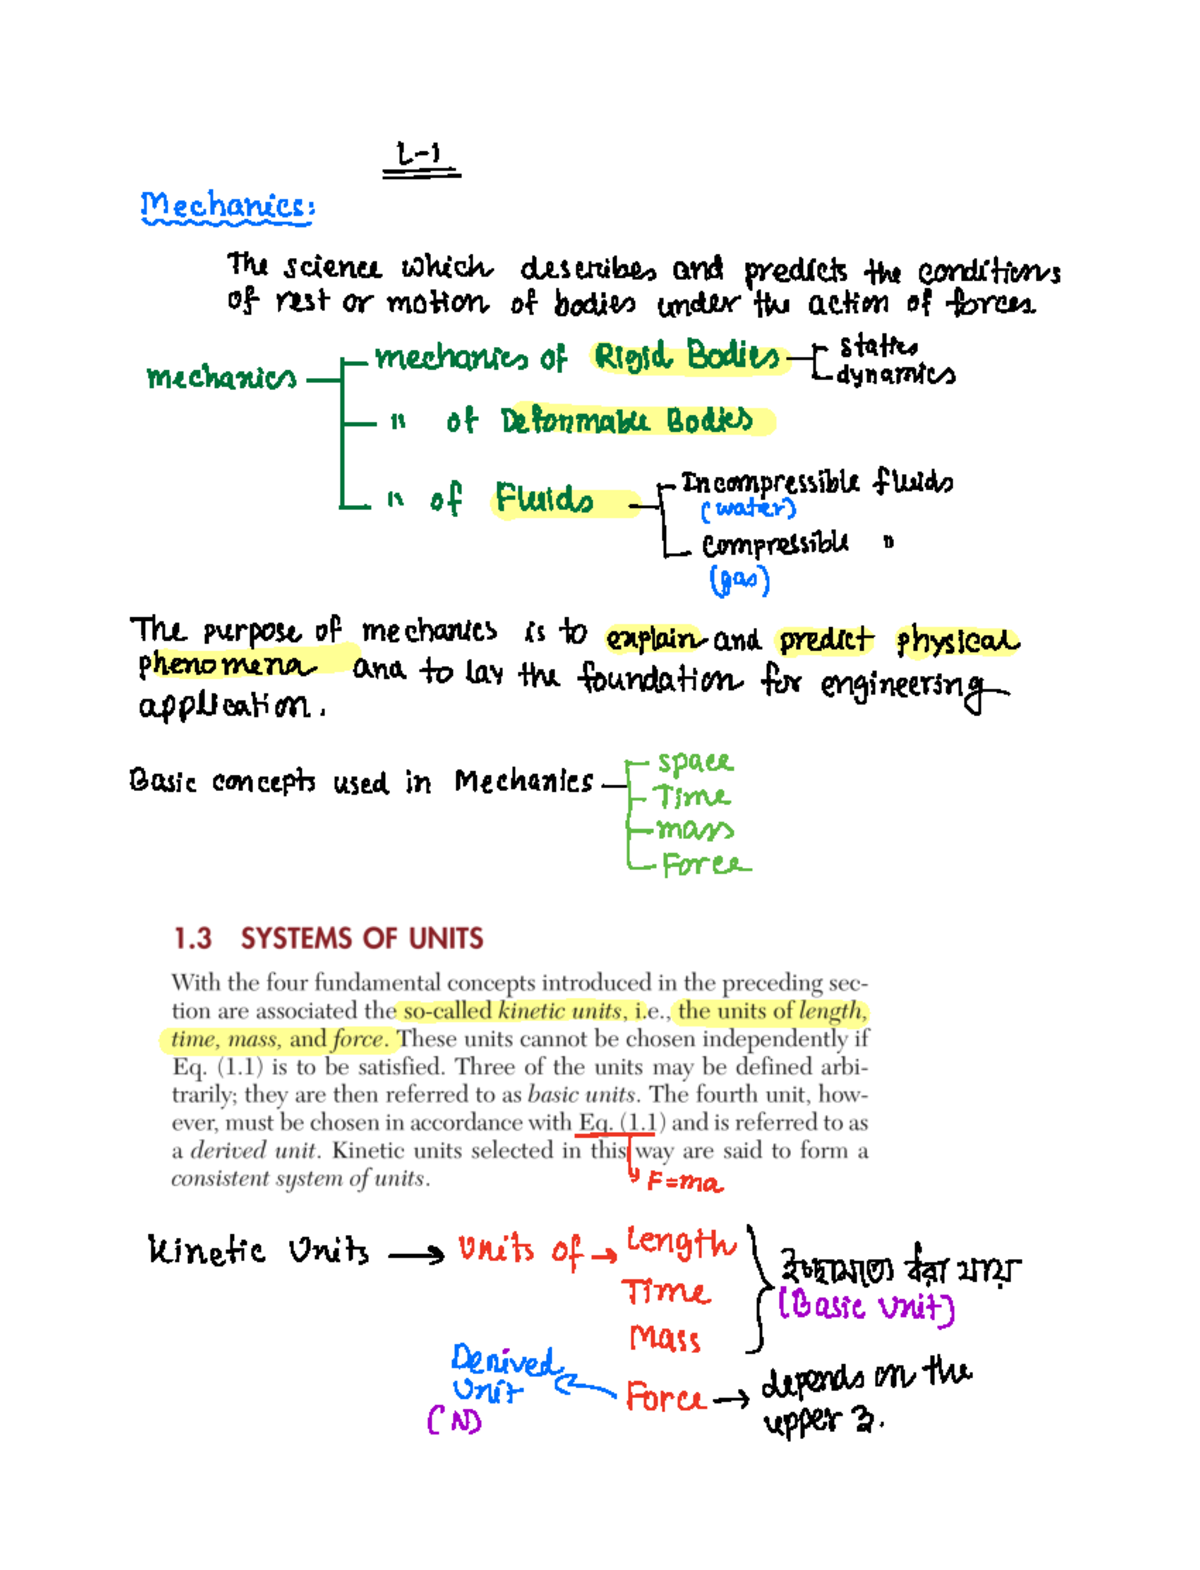 L-1
Mechanics:
The science which describes and predicts the conditions
of rest or motion of bodies under the action of forces.
mechanics
mechanics of Rigid Bodies
statics
dynamics
" of Deformable Bodies
" of Fluids
Incompressible fluids
(water)
compressible "
(gas)
The purpose of mechanics is to explain and predict physical
phenomena and to lay the foundation for engineering
application.
Basic concepts used in Mechanics
space
Time
mass
Force
1.3 SYSTEMS OF UNITS
With the four fundamental concepts introduced in the preceding sec-
tion are associated the so-called kinetic units, i.e., the units of length,
time, mass, and force. These units cannot be chosen independently if
Eq. (1.1) is to be satisfied. Three of the units may be defined arbi-
trarily; they are then referred to as basic units. The fourth unit, how-
ever, must be chosen in accordance with Eq. (1.1) and is referred to as
a derived unit. Kinetic units selected in this way are said to form a
consistent system of units.
F=ma
Kinetic Units → Units of → Length
Time
Mass
ইচ্ছামতো করা যায়
(Basic Unit)
Derived
Unit
(N)
Force → depends on the
upper 3.